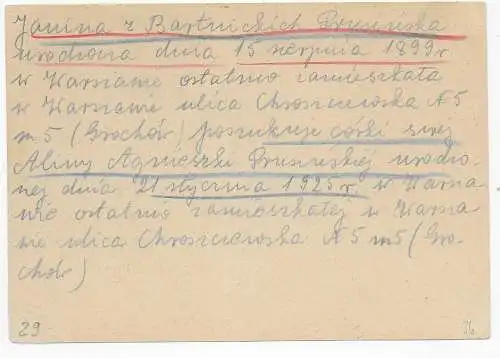 Janina z Bartnickich Prusińska
urodzona dnia 15 sierpnia 1899 r
w Warszawie ostatnio zamieszkała
w Warszawie ulica Chroszczewska N 5
m 5 (Grochów) poszukuje córki swej
Aliny Agnieszki Prusińskiej urodzo-
nej dnia 21 stycznia 1925 r. w Warsza
wie ostatnio zamieszkałej w Warsza
wie ulica Chroszczewska N 5 m 5 (Gro-
chów)
29